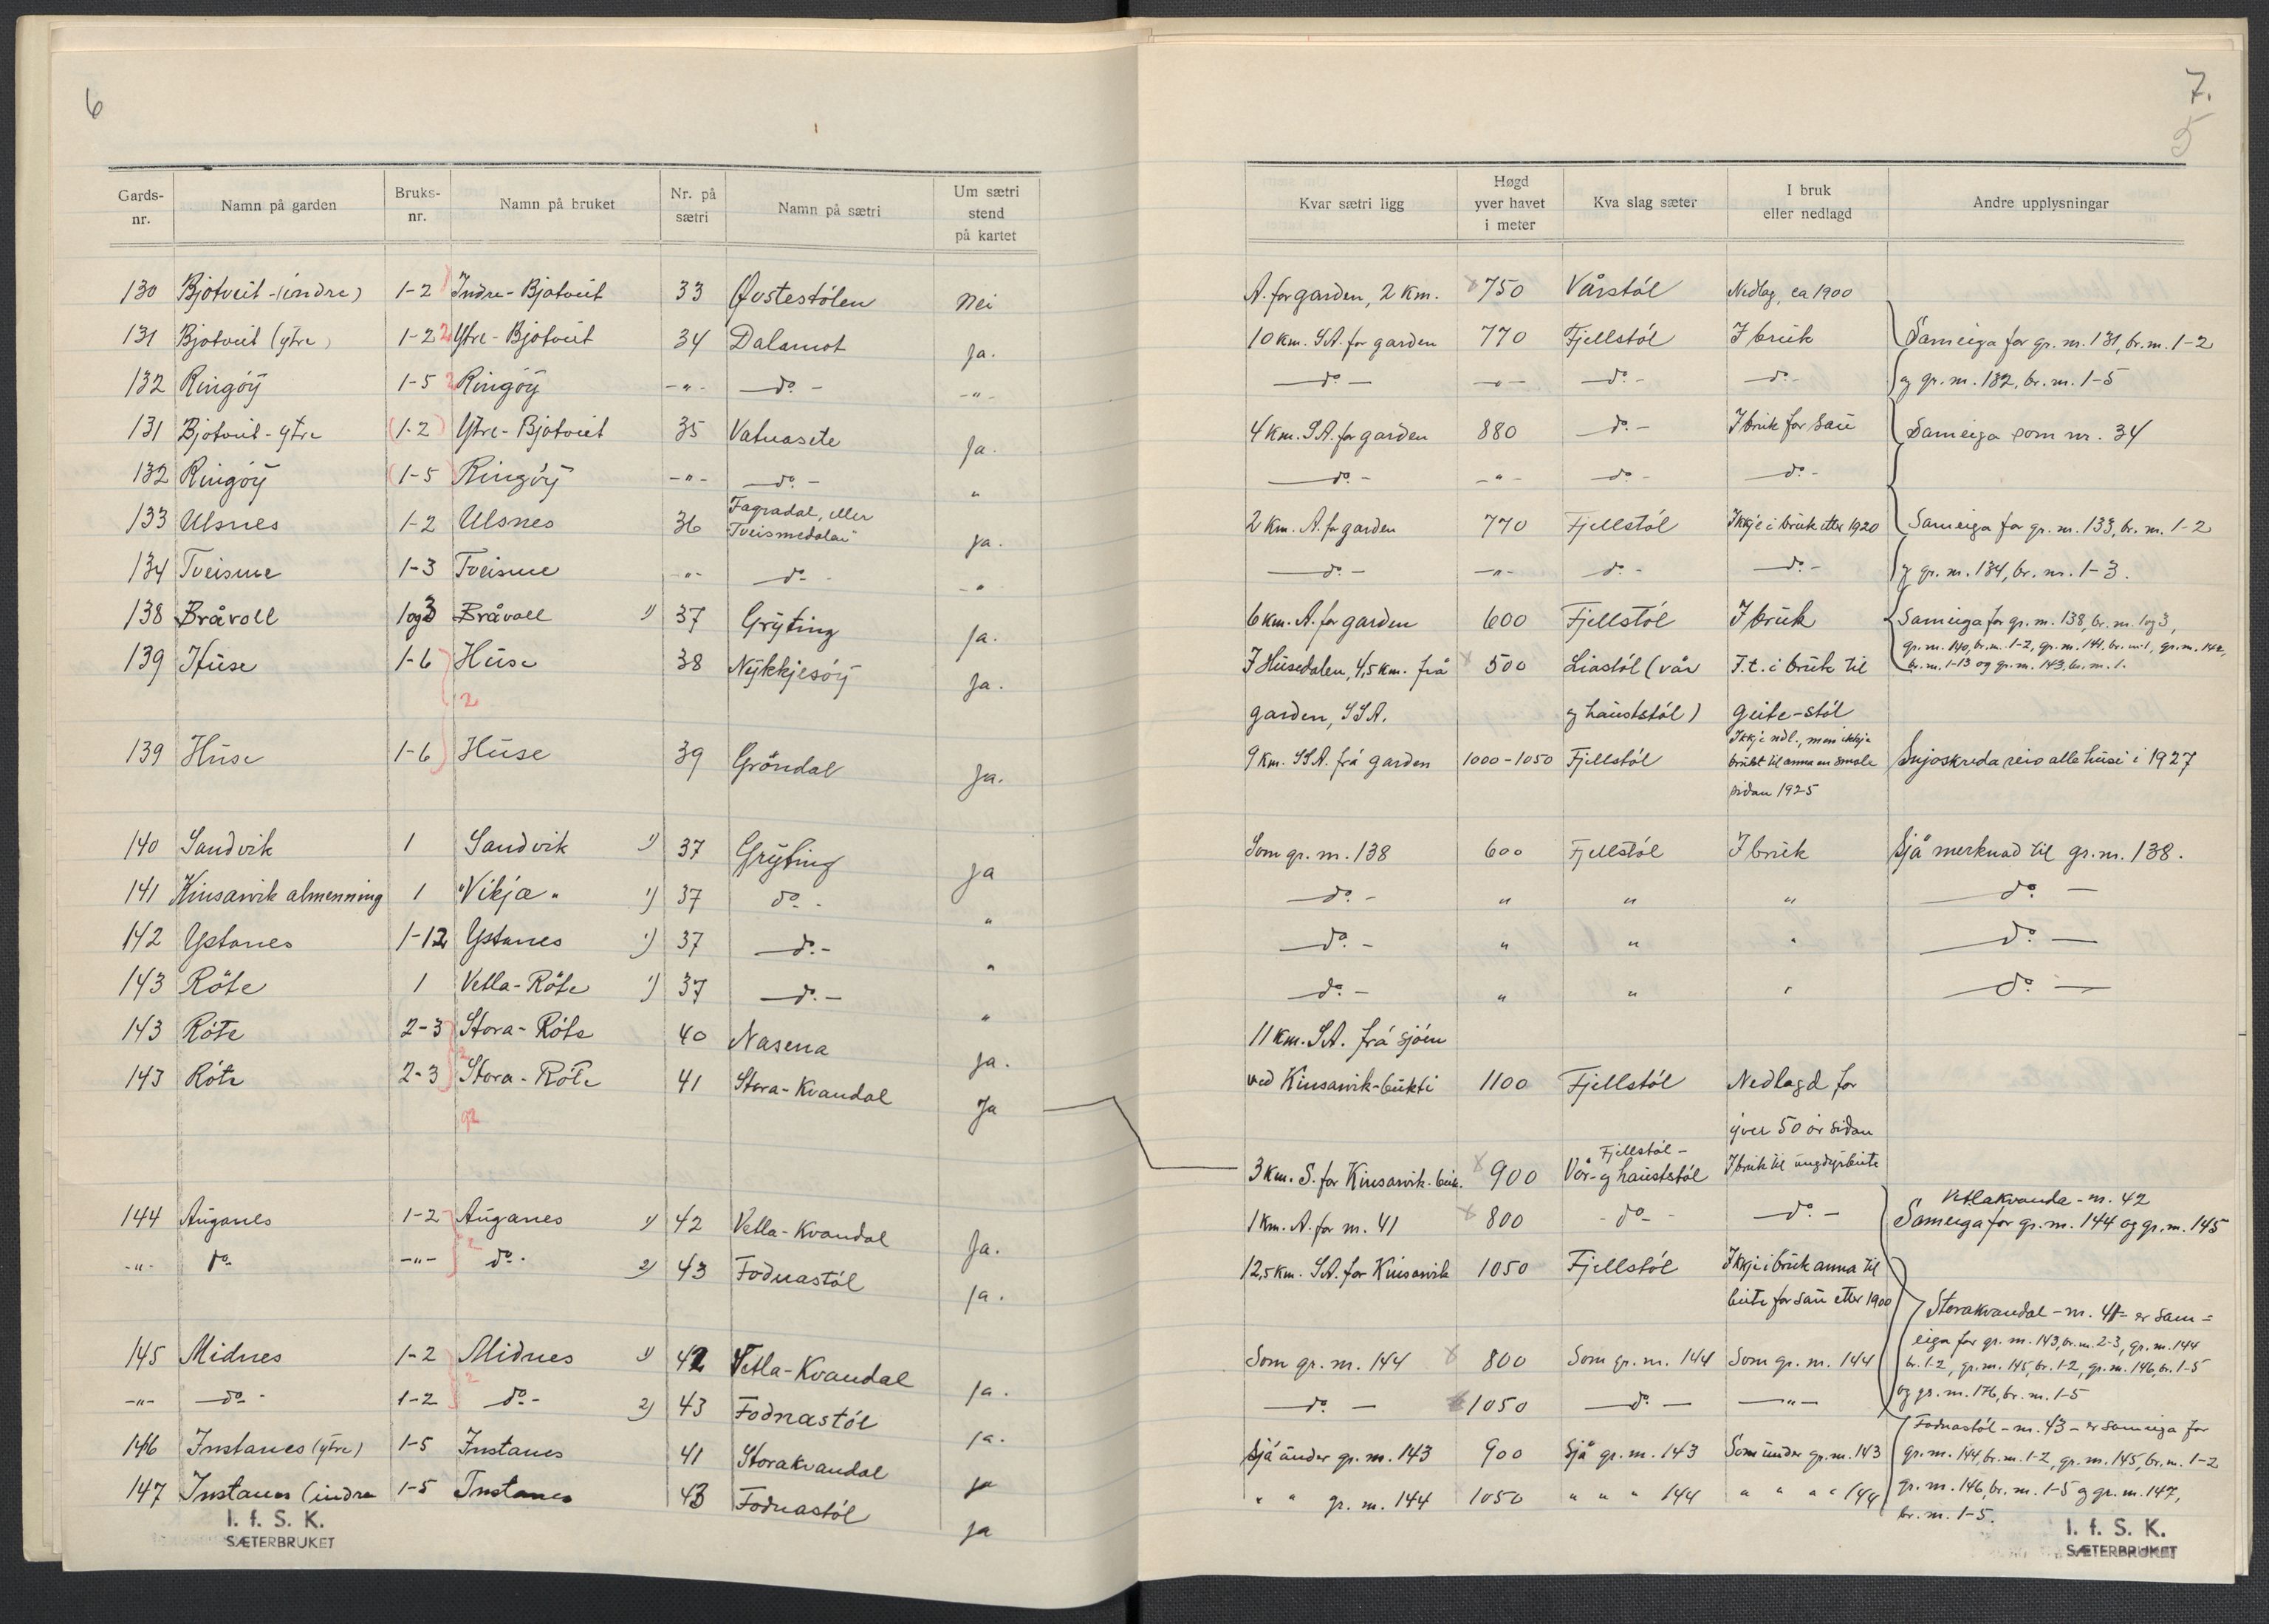 6
Gards-nr. Namn på garden Bruks-nr. Namn på bruket Nr. på sætri Namn på sætri Um sætri stend på kartet
130 Bjotveit-(indre) 1-2 Indre-Bjotveit 33 Ovstestölen Nei
131 Bjotveit (ytre) 1-2 2 Ytre-Bjotveit 34 Dalamot Ja.
132 Ringöy 1-5 2 Ringöy -"- do - -"-
131 Bjotveit-ytre (1-2) Ytre-Bjotveit 35 Vatnasete Ja.
132 Ringöy (1-5) Ringöy -"- do - "
133 Ulsnes 1-2 Ulsnes 36 Fagradal, eller
Tveismedalen" Ja.
134 Tveisme 1-3 Tveisme -"- do - -"
138 Bråvoll 1og3 Bråvoll 1) 37 Gryting Ja.
139 Huse 1-6 Huse 38 Nykkjesöy Ja.
2
139 Huse 1-6 Huse 39 Gröndal Ja.
140 Sandvik 1 Sandvik 1) 37 Gryting Ja
141 Kinsarvik almenning 1 "Vikja" 1) 37 do - "
142 Ystanes 1-12 Ystanes 1) 37 do - "
143 Röte 1 Vetla-Röte 1) 37 do - "
143 Röte 2-3 Stora-Röte 40 Nasena Ja.
143 Röte 2-3 Stora-Röte 41 Stora-Kvandal Ja
144 Auganes 1-2 Auganes 1) 42 Vetla-Kvandal Ja.
-"- do -"- do - 2) 43 Fodnastöl Ja.
145 Midnes 1-2 Midnes 1) 42 Vetla-Kvandal Ja.
-"- do - 1-2 do - 2) 43 Fodnastöl Ja.
146 Instanes (ytre) 1-5 Instanes 41 Storakvandal Ja
147 Instanes (indre 1-5 Instanes 43 Fodnastöl Ja
I. f. S. K.
SÆTERBRUKET
7.
5
Kvar sætri ligg Høgd yver havet i meter Kva slag sæter I bruk eller nedlagd Andre upplysningar
A. for garden, 2 km. 750 Vårstöl Nedlag, ca 1900
10 km. SA. for garden 770 Fjellstöl I bruk Sameiga for gr. nr. 131, br. nr. 1-2
do - -"- do - do - og gr. nr. 132, br. nr. 1-5
4 km. SA. for garden 880 do - I bruk for sau Sameiga som nr. 34
do - -"- do - do -
2 km. A. for garden 770 Fjellstöl Ikkje i bruk etter 1920 Sameiga for gr. nr. 133, br. nr. 1-2
do - -"- do - do - og gr. nr. 134, br. nr. 1-3.
6 km. A. for garden 600 Fjellstöl I bruk Sameiga for gr. nr. 138, br. nr. 1og3,
gr. nr. 140, br. nr. 1-2, gr. nr. 141, br. nr. 1, gr. nr. 142,
br. nr. 1-13 og gr. nr. 143, br. nr. 1.
I Husedalen, 4,5 km. frå 500 Liastöl (vår F.t. i bruk til
garden, SSA. og hauststöl) geite-stöl
9 km. SSA. frå garden 1000-1050 Fjellstöl Ikkje ndl., men ikkje
brukt til anna en smale
sidan 1925 Snjoskreda reiv alle husi i 1927
Som gr. nr. 138 600 Fjellstöl I bruk Sjå merknad til gr. nr. 138.
do - " " " do -
do - " " " do -
do - " " " do -
11 km. SA. frå sjöen
ved Kinsarvik-bukti 1100 Fjellstöl Nedlagd for
yver 50 år sidan
3 km. S. for Kinsarvik-buk. 900 Fjellstöl-
Vår- og hauststöl I bruk til ungdyrbeite
1 km. A. for nr. 41 800 - do - do - Vetlakvanda - nr. 42
Sameiga for gr. nr. 144 og gr. nr. 145
12,5 km. SA. for Kinsarvik 1050 Fjellstöl Ikkje i bruk anna til
beite for sau etter 1900
Storakvandal - nr. 41 - er sam=
eiga for gr. nr. 143, br. nr. 2-3, gr. nr. 144
br. 1-2, gr. nr. 145, br. 1-2, gr. nr. 146, br. 1-5
og gr. nr. 176, br. nr. 1-5
Som gr. nr. 144 800 Som gr. nr. 144 Som gr. nr. 144
do - 1050 do - -"-
Sjå under gr. nr. 143 900 Sjå gr. nr. 143 Som under gr. nr. 143
" " gr. nr. 144 1050 " " " 144 " " " " 144
Fodnastöl - nr. 43 - er sameiga for
gr. nr. 144, br. nr. 1-2, gr. nr. 145, br. nr. 1-2
gr. nr. 146, br. nr. 1-5 og gr. nr. 147,
br. nr. 1-5.
I. f. S. K.
SÆTERBRUKET